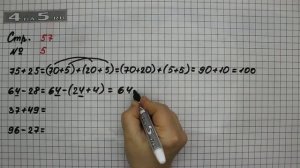 4 5 .by
Стр. 57
№ 5
75+25=(70+5)+(20+5)=(70+20)+(5+5)=90+10=100
64-28=64-(24+4)= 64
37+49=
96-27=